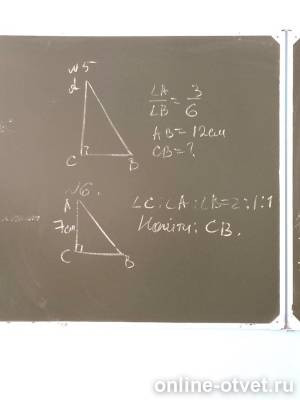 №5
A
C
B
∠A/∠B = 3/6
AB = 12см
CB = ?
№6.
A
7см
C
B
∠C : ∠A : ∠B = 2:1:1
Найти: CB.
online-otvet.ru